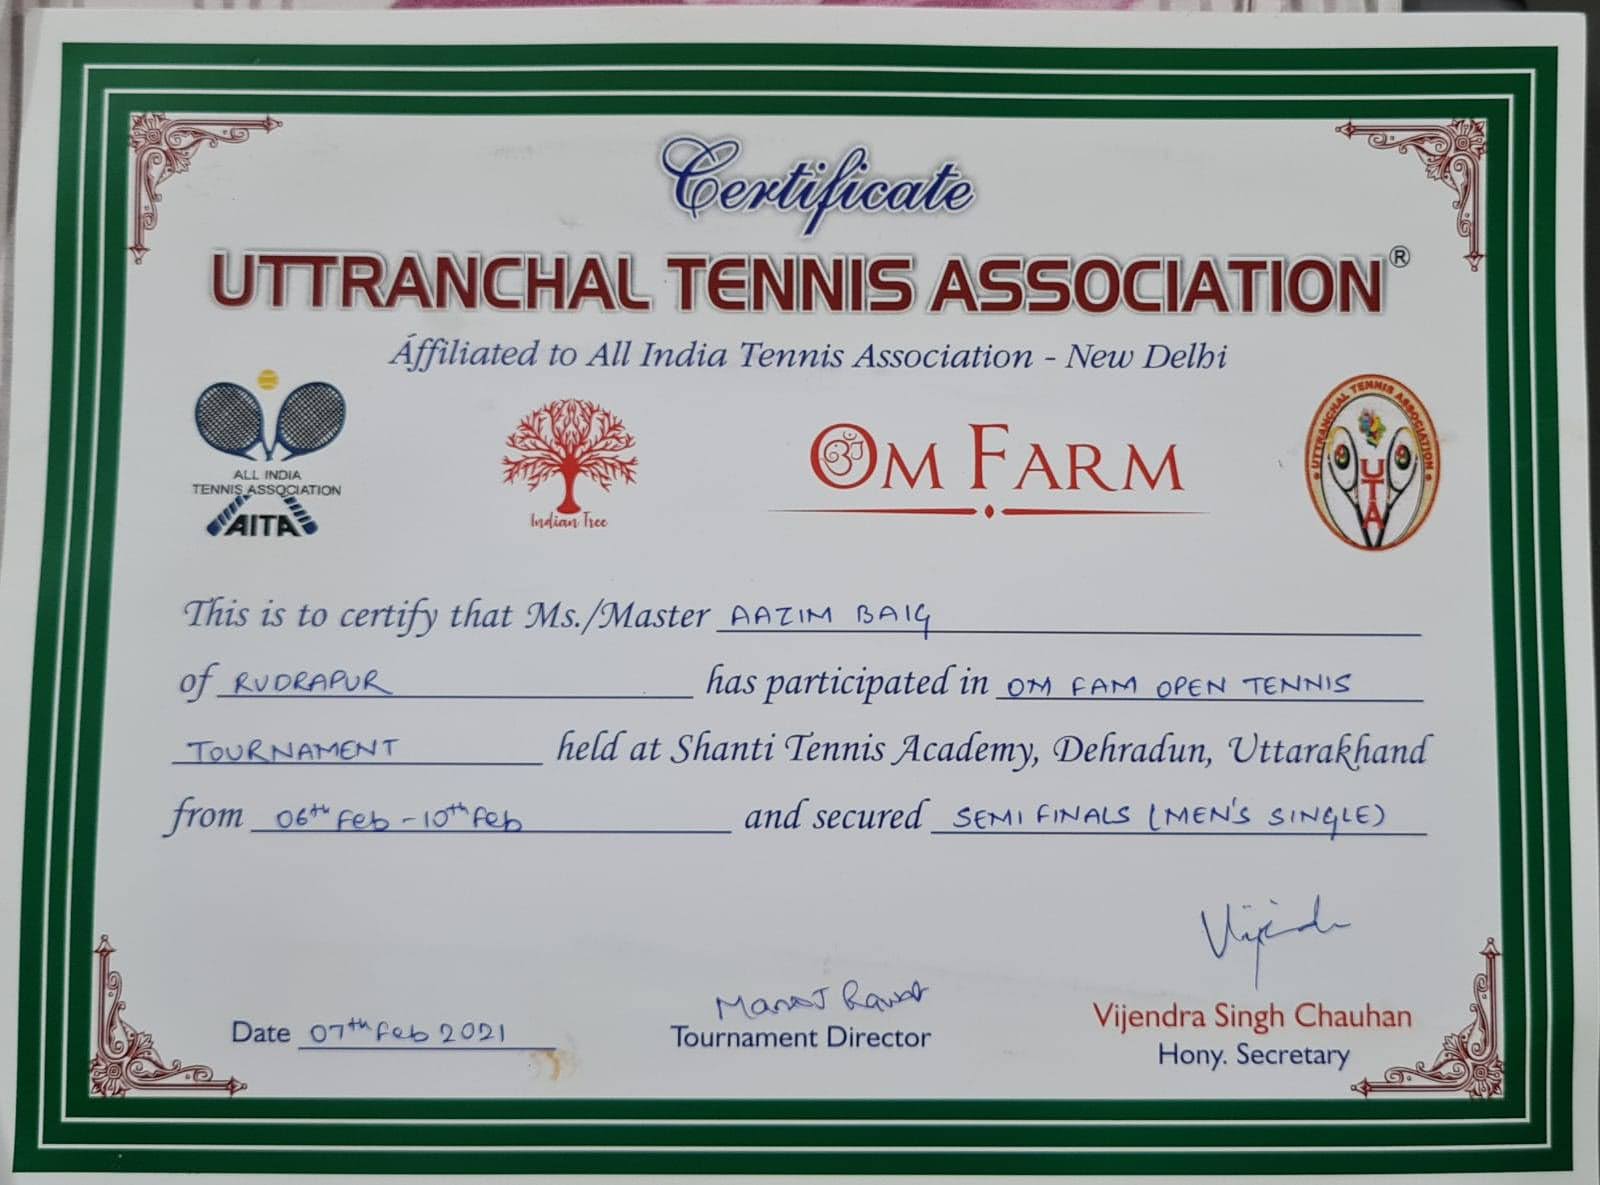 Certificate
UTTRANCHAL TENNIS ASSOCIATION®
Affiliated to All India Tennis Association - New Delhi
ALL INDIA
TENNIS ASSOCIATION
AITA
Indian Tree
ॐ
OM FARM
UTTRANCHAL TENNIS ASSOCIATION
UTA
This is to certify that Ms./Master AAZIM BAIG
of RUDRAPUR has participated in OM FAM OPEN TENNIS
TOURNAMENT held at Shanti Tennis Academy, Dehradun, Uttarakhand
from 06th Feb - 10th Feb and secured SEMI FINALS (MEN'S SINGLE)
Vijendra
Manoj Rawat
Vijendra Singh Chauhan
Date 07th Feb 2021 Tournament Director
Hony. Secretary